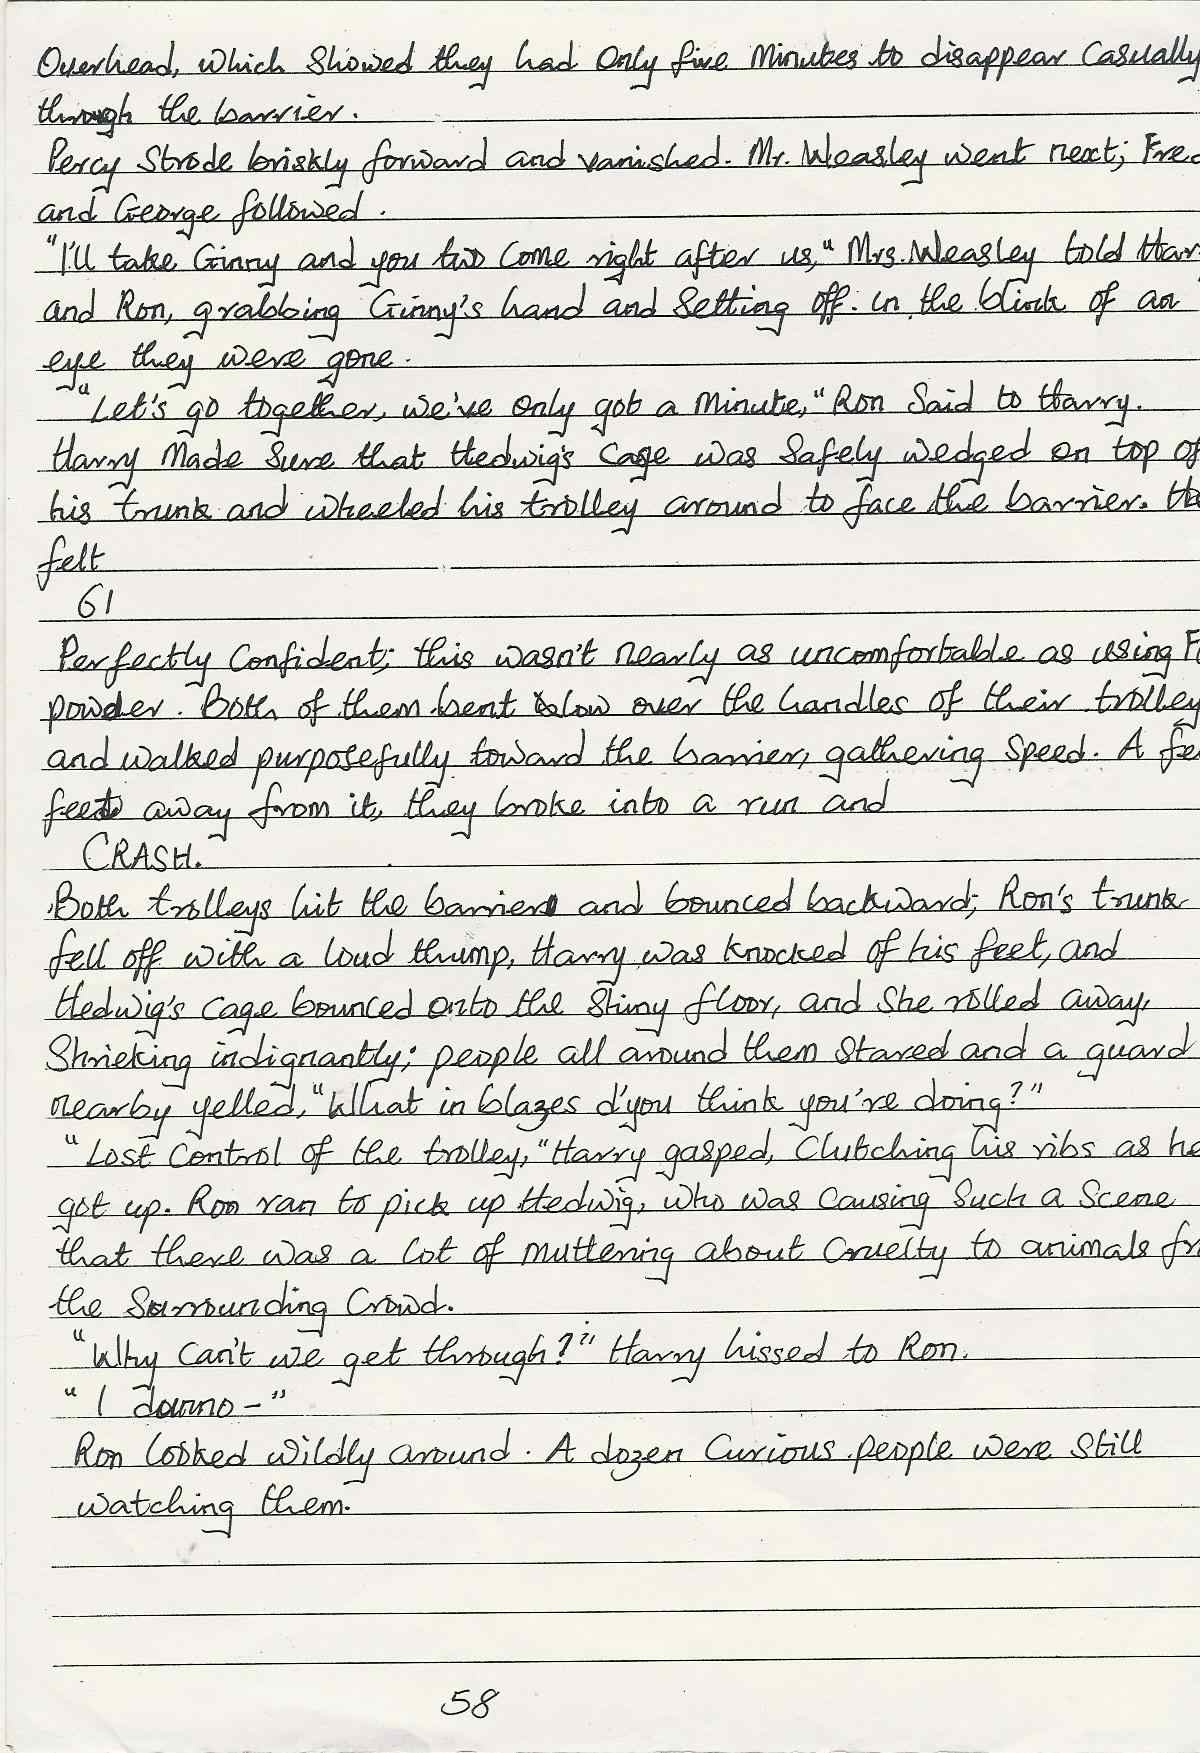 Overhead, which Showed they had Only five Minutes to disappear Casually
through the barrier.
Percy Strode briskly forward and vanished. Mr. Weasley went next; Fred
and George followed.
"I'll take Ginny and you two Come right after us," Mrs. Weasley told Har
and Ron, grabbing Ginny's hand and Setting off. in the blink of an
eye they were gone.
"Let's go together, we've only got a Minute," Ron Said to Harry.
Harry Made Sure that Hedwig's Cage was Safely wedged on top of
his trunk and wheeled his trolley around to face the barrier. Ha
felt
61
Perfectly Confident; this wasn't nearly as uncomfortable as using F
powder. Both of them bent low over the handles of their trolley
and walked purposefully toward the barrier, gathering Speed. A fe
feet away from it, they broke into a run and
CRASH.
Both trolleys hit the barrier and bounced backward; Ron's trunk
fell off with a loud thump, Harry was knocked of his feet, and
Hedwig's cage bounced onto the Shiny floor, and She rolled away,
Shrieking indignantly; people all around them Stared and a guard
nearby yelled, "What in blazes d'you think you're doing?"
"Lost Control of the trolley," Harry gasped, Clutching his ribs as he
got up. Ron ran to pick up Hedwig, who was Causing Such a Scene
that there was a lot of muttering about Cruelty to animals fr
the Surrounding Crowd.
"Why Can't we get through?" Harry hissed to Ron.
"I dunno-"
Ron looked wildly around. A dozen Curious people were Still
watching them.
58